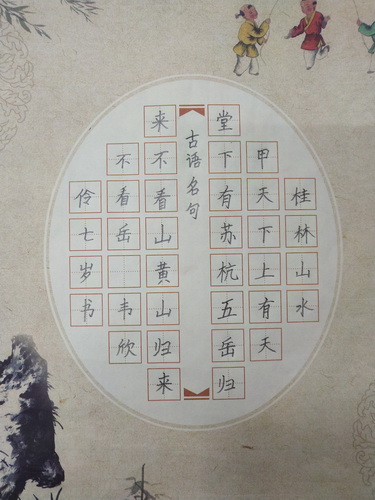 古语名句
桂林山水
甲天下上有天
堂下有苏杭五岳归
来不看山黄山归来
不看岳 韦欣
伶七岁书